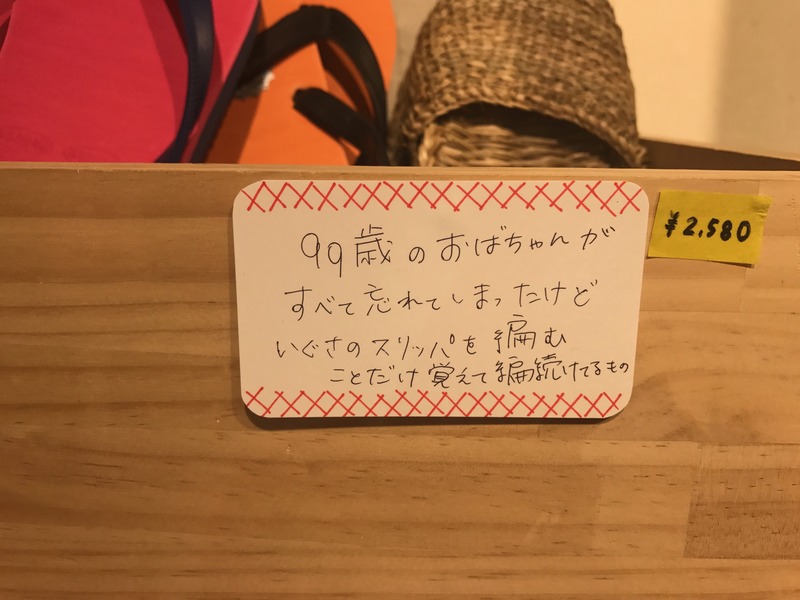 99歳のおばちゃんが
すべて忘れてしまったけど
いぐさのスリッパを編む
ことだけ覚えて編続けてるもの
¥2,580